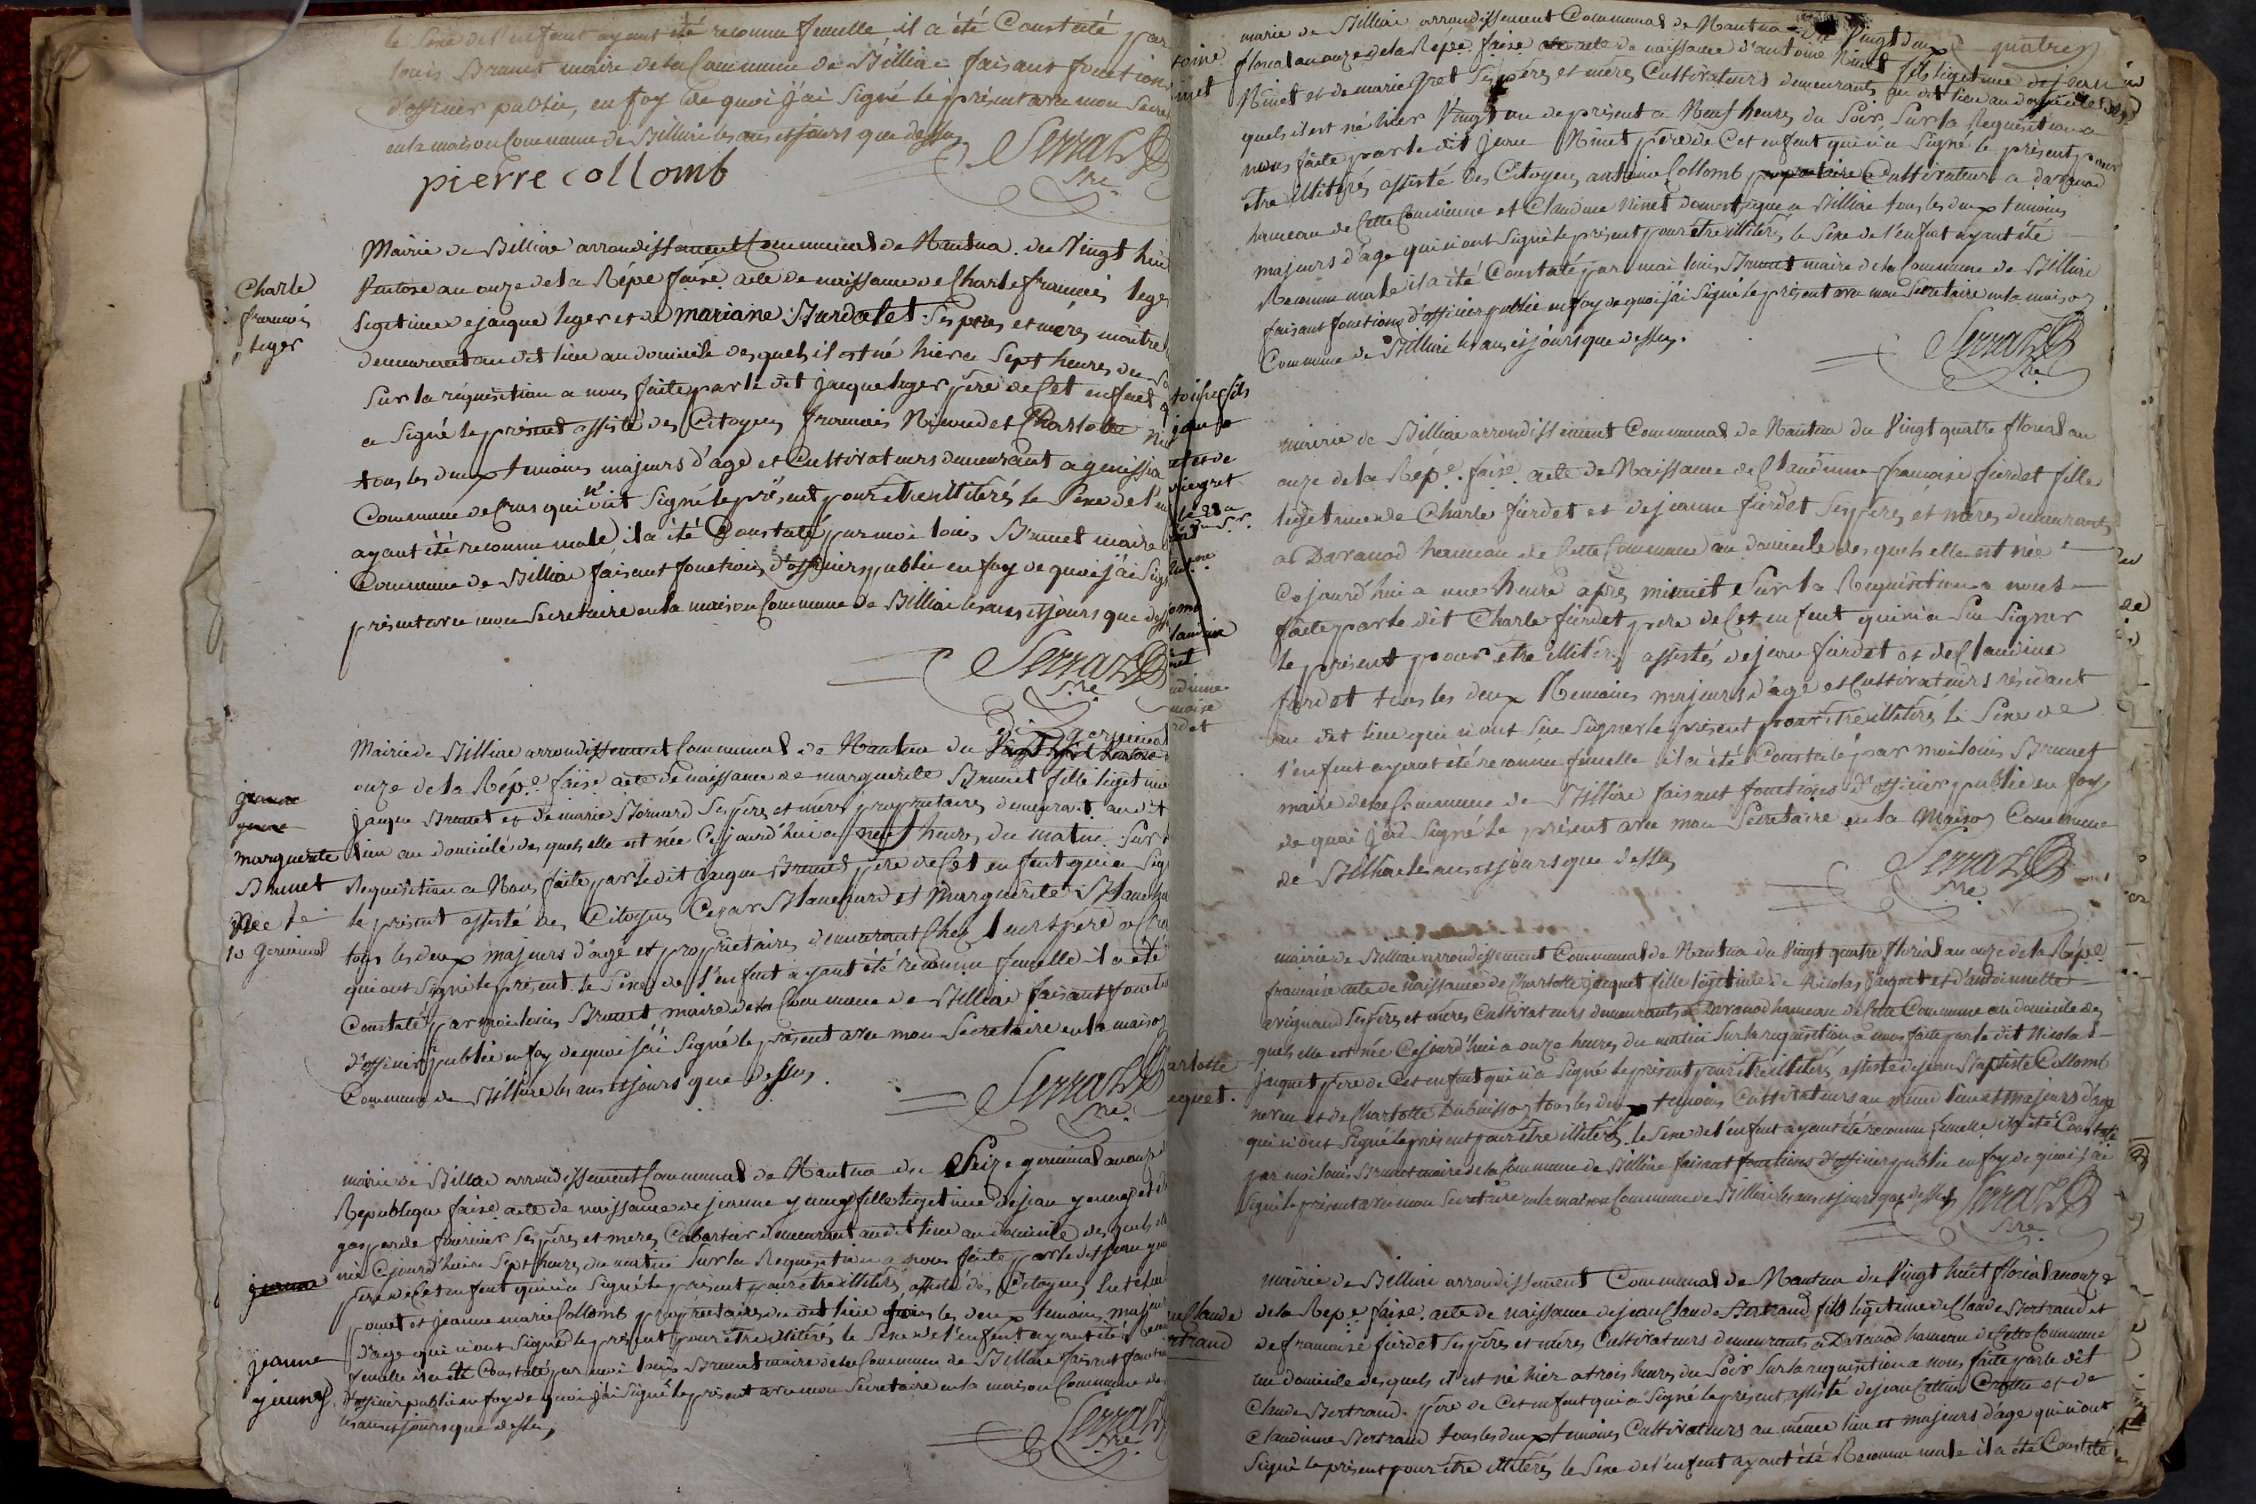 le sexe de l'enfant ayant été reconnu femelle il a été Constaté par
louis Brunet maire de la Commune de Billiat faisant fonctions
d'officier public, en foy de quoi j'ai signé le présent avec mon Secre
en la maison Commune de Billiat les ans et jours que dessus
Serra
Sre
pierre collomb
Charle
francois
leger
Mairie de Billiat arrondissement Communal de Nantua. du Vingt huit
Ventose an onze de la Répe. faise. acte de naissance de Charle francois leger
legetime de jaque leger et de mariane Burdalet ses pères et mères maitre
demeurant au dit lieu au domicile desquels il est né hier a Sept heures du
Sur la réquisition a nous faite par le dit jaque leger père de Cet enfant
a signé le présent assisté des Citoyens francois et Charlotte
tous les deux temoins majeurs d'age et Cultivateurs demeurant a
Commune de Cras qui n'ont signé le présent pour etre illiterés le Sexe de l'en
ayant été reconnu male il a été Constaté par moi louis Brunet maire
Commune de Billiat faisant fonctions d'officier public en foy de quoi j'ai sig
présent avec mon Secretaire en la maison Commune de Billiat les ans et jours que des
Serra
Sre
dix germinal
Mairie de Billiat arrondissement Communal de Nantua du Vingt huit Ventose
onze de la Répe. faise. acte de naissance de marguerite Brunet fille legetime
jeanne
yenne
marguerite
Brunet
née le
10 Germinal
jaque Brunet et de marie Bornard ses pères et mères proprietaires demeurant au dit
lieu au domicile desquels elle est née Cejourd'hui a neuf heures du matin. Sur
Requisition a Nous faite par le dit jaque Brunet père de Cet enfant qui a Sig
le présent assisté des Citoyens Cesar Blanchard et Marguerite Blanchard
tous les deux majeurs d'age et proprietaires demeurant Chez leurs père a
qui ont signé le présent. le Sexe de l'enfant ayant été reconnu femelle il a été
Constaté par moi louis Brunet maire de la Commune de Billiat faisant foncti
d'officier public en foy de quoi j'ai signé le présent avec mon Secretaire en la maison
Commune de Billiat les ans et jours que dessus.
Serra
Sre
mairie de Billiat arrondissement Communal de Nantua du Seize germinal an onze
Republique faise. acte de naissance de jeanne yenny fille legetime de jean yenny et de
gasparde fournier ses pères et mères Cabartier demeurant au dit lieu au domicile des quels
jeanne
née Cejourd'hui a Sept heures du matin Sur la Requisition a nous faite par le dit jean
père de Cet enfant qui n'a signé le présent pour etre illiterés, assisté des Citoyens
ponet et jeanne marie Collomb proprietaires du dit lieu tous les deux temoins majeurs
d'age qui n'ont signé le présent pour être illiterés le Sexe de l'enfant ayant été
jeanne
yenny
femelle il a été Constaté par moi louis Brunet maire de la Commune de Billiat faisant fonction
d'officier public en foy de quoi j'ai signé le présent avec mon Secretaire en la maison Commune de
les ans et jours que dessus,
Serra
Sre
quatre
marie de Billiat arrondissement Communal de Nantua du Vingt deux
floreal an onze de la Répe. faise. acte de naissance d'antoine Ninet fils legetime de jean
Ninet et de marie gret ses pères et mères Cultivateurs demeurants au dit lieu au domicile des
quels il est né hier Vingt un de présent a Neuf heures du Soir, Sur la Requisition a
nous faite par le dit jean Ninet père de Cet enfant qui n'a signé le présent pour
etre illiterés, assisté des Citoyens antoine Collomb Cultivateur a daranod
hameau de Cette Commune et Claudine Ninet domestique a Billiat tous les deux temoins
majeurs d'age qui n'ont signé le présent pour être illiterés, le Sexe de l'enfant ayant été
Reconnu male il a été Constaté par moi louis Brunet maire de la Commune de Billiat
faisant fonctions d'officier public en foy de quoi j'ai signé le présent avec mon Secretaire en la maison
Commune de Billiat les ans et jours que dessus.
Serra
Sre
mairie de Billiat arrondissement Communal de Nantua du Vingt quatre floreal an
onze de la Répe. faise. acte de Naissance de Claudinne francoise fierdet fille
legetime de Charle fierdet et de jeanne fierdet ses pères et mères demeurants
a Daranod hameau de Cette Commune au domicile des quels elle est née
Cejourd'hui a une heure après minuit Sur la Requisition a nous
faite par le dit Charle fierdet père de Cet enfent qui n'a su Signer
le présent pour être illiterés assistés de jean fierdet et de Claudine
fierdet tous les deux Temoins majeurs d'age et Cultivateurs résidant
au dit lieu qui n'ont su signer le présent pour être illiterés le Sexe de
l'enfent ayant été reconnue femelle il a été Constaté par moi louis Brunet
maire de la Commune de Billiat faisant fonctions d'officier public en foy
de quoi j'ai Signé le présent avec mon Secretaire en la Maison Commune
de Billiat les ans et jours que dessus
Serra
Sre
mairie de Billiat arrondissement Communal de Nantua du Vingt quatre floréal an onze de la Répe.
francaise acte de naissance de Charlotte jaquet fille légetime de Nicolas jaquet et d'andoinnette
avignand ses pères et mères Cultivateurs demeurants a Daranod hameau de Cette Commune au domicile des
quels elle est née Cejourd'hui a onze heures du matin Sur la requisition a nous faite par le dit Nicolas
jaquet père de Cet enfent qui n'a signé le présent pour être illiterés, assisté de jean Baptiste Collomb
neveu et de Charlotte Dubuisson tous les deux temoins Cultivateurs au même lieu et majeurs d'age
qui n'ont signé le présent pour être illiterés, le Sexe de l'enfent ayant été reconnu femelle il a été Constaté
par moi louis Brunet maire de la Commune de Billiat faisant fonctions d'officier public en foy de quoi j'ai
signé le présent avec mon Secretaire en la maison Commune de Billiat les ans et jours que dessus
Serra
Sre
mairie de Billiat arrondissement Communal de Nantua du Vingt huit floreal an onze
de la Répe. faise. acte de naissance de jean Claude Bertrand fils légetime de Claude Bertrand et
de francoise fierdet ses pères et mères Cultivateurs demeurants a Daranod hameau de Cette Commune
au domicile desquels il est né hier a trois heures du Soir Sur la requisition a nous faite par le dit
Claude Bertrand père de Cet enfent qui a signé le présent assisté de jean et de
Claudinne Bertrand tous les deux temoins Cultivateurs au même lieu et majeurs d'age qui n'ont
signé le présent pour être illiterés le Sexe de l'enfent ayant été Reconnu male il a été Constaté